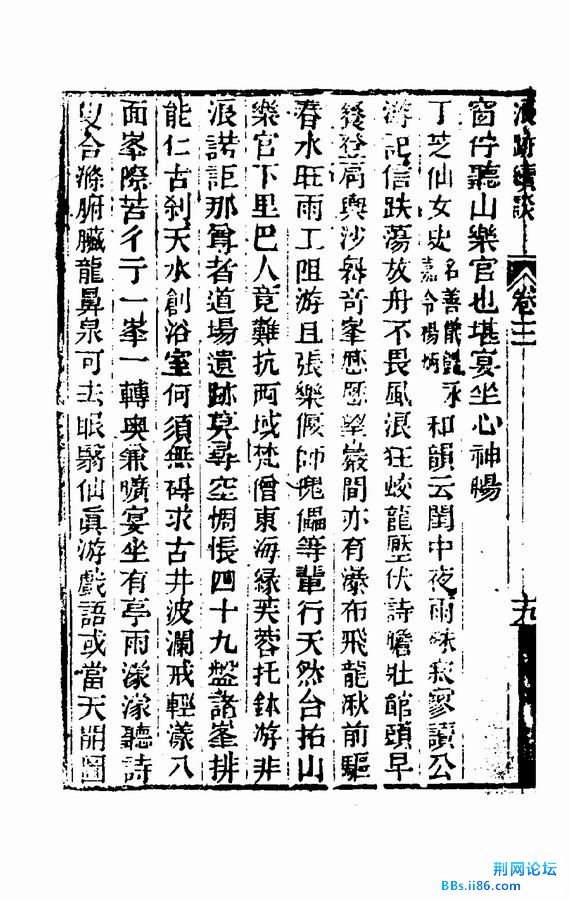 浪跡續談 卷三 九
窗佇聽山樂官也堪宴坐心神暢
丁芝仙女史名善儀永嘉令楊炳和韻云閨中夜雨寂寥讀公
游記信跌蕩放舟不畏風浪狂蛟龍壓伏詩膽壯館頭早
筍輿沙奇峯歷歷望巖間亦有瀑布飛龍湫前驅
春水旺雨工阻游且張樂偃師傀儡等輩行天然台拓山
樂官下里巴人竟難抗西域梵僧東海緣芙蓉托鉢游非
浪諾詎那尊者道場遺跡莫尋空惆悵四十九盤諸峯排
能仁古刹天水創浴室何須無碍求古井波瀾戒輕漾八
面峯際苦彳亍一峯一轉奥兼曠宴坐有亭雨濛濛聽詩
叟合滌腑臟龍鼻泉可去眼翳仙眞游戲語或當天開圖
荆网论坛
BBs.ii86.com